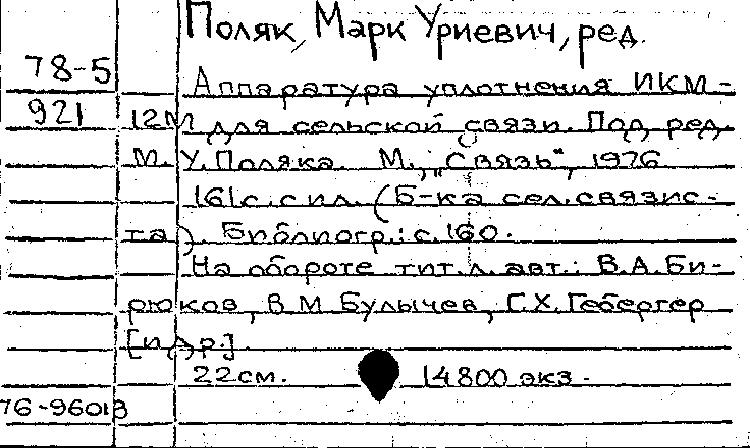 Поляк, Марк Уриевич, ред.
78-5
Аппаратура уплотнения ИКМ-
921
12М для сельской связи. Под ред.
М. У. Поляка. М., "Связь", 1976
161 с. с ил. (Б-ка сел. связис-
та). Библиогр.: с. 160.
На обороте тит. л. авт.: В.А. Би-
рюков, В М Булычев, Г.Х. Гебергер
[и др.].
22 см. 14800 экз.
76-96018